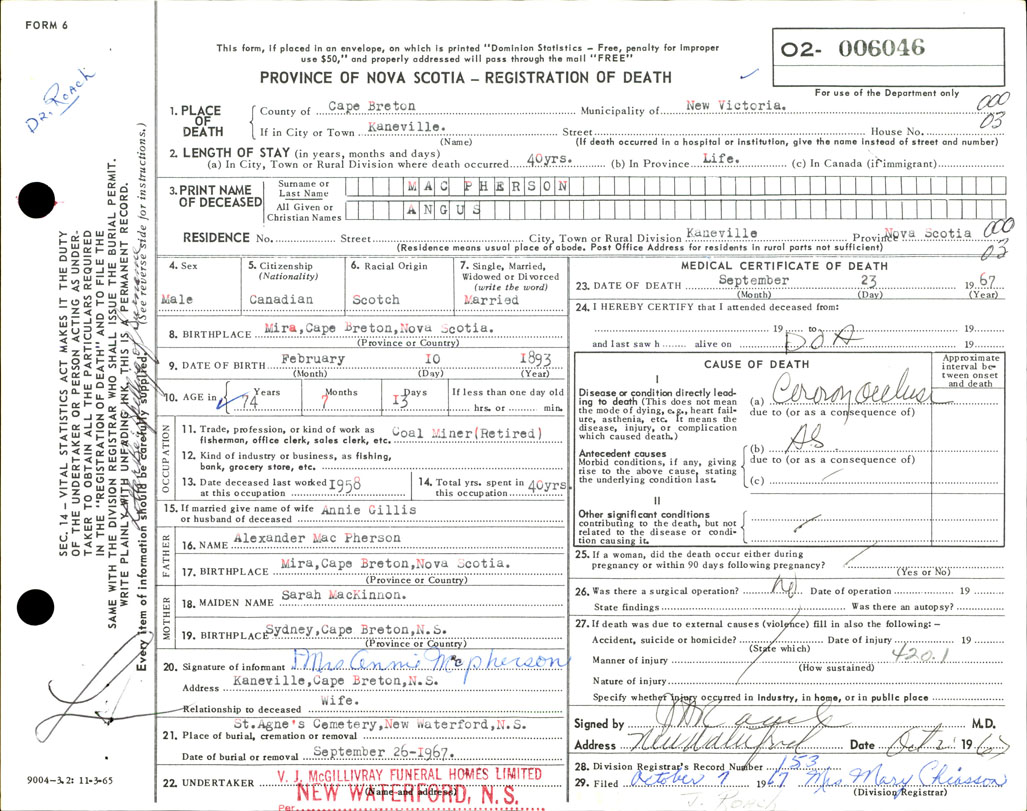 FORM 6
This form, if placed in an envelope, on which is printed "Dominion Statistics – Free, penalty for improper
use $50," and properly addressed will pass through the mail "FREE"
PROVINCE OF NOVA SCOTIA – REGISTRATION OF DEATH
02- 006046
For use of the Department only
Dr. Roach
1. PLACE OF DEATH
County of Cape Breton Municipality of New Victoria.
000
03
If in City or Town Kaneville. Street House No.
(Name) (If death occurred in a hospital or institution, give the name instead of street and number)
2. LENGTH OF STAY (in years, months and days)
(a) In City, Town or Rural Division where death occurred 40yrs. (b) In Province Life. (c) In Canada (if immigrant)
3. PRINT NAME OF DECEASED
Surname or Last Name MAC PHERSON
All Given or Christian Names ANGUS
RESIDENCE No. Street City, Town or Rural Division Kaneville Province Nova Scotia
000
03
(Residence means usual place of abode. Post Office Address for residents in rural parts not sufficient)
4. Sex Male
5. Citizenship (Nationality) Canadian
6. Racial Origin Scotch
7. Single, Married, Widowed or Divorced (write the word) Married
8. BIRTHPLACE Mira,Cape Breton,Nova Scotia.
(Province or Country)
9. DATE OF BIRTH February 10 1893
(Month) (Day) (Year)
10. AGE in 74 Years 7 Months 13 Days If less than one day old
hrs. or min.
OCCUPATION
11. Trade, profession, or kind of work as
fisherman, office clerk, sales clerk, etc. Coal Miner(Retired)
12. Kind of industry or business, as fishing,
bank, grocery store, etc.
13. Date deceased last worked at this occupation 1958
14. Total yrs. spent in this occupation 40yrs.
15. If married give name of wife or husband of deceased Annie Gillis
FATHER
16. NAME Alexander Mac Pherson
17. BIRTHPLACE Mira,Cape Breton,Nova Scotia.
(Province or Country)
MOTHER
18. MAIDEN NAME Sarah MacKinnon.
19. BIRTHPLACE Sydney,Cape Breton,N.S.
(Province or Country)
20. Signature of informant Mrs Annie McPherson
Address Kaneville,Cape Breton,N.S.
Relationship to deceased Wife.
21. Place of burial, cremation or removal St.Agne's Cemetery,New Waterford,N.S.
Date of burial or removal September 26-1967.
22. UNDERTAKER V. J. McGILLIVRAY FUNERAL HOMES LIMITED
(Name and address)
NEW WATERFORD, N. S.
Per
MEDICAL CERTIFICATE OF DEATH
23. DATE OF DEATH September 23 1967
(Month) (Day) (Year)
24. I HEREBY CERTIFY that I attended deceased from:
19 to 19
and last saw h alive on DOA 19
CAUSE OF DEATH
Approximate interval between onset and death
I
Disease or condition directly leading to death (This does not mean the mode of dying, e.g., heart failure, asthenia, etc. it means the disease, injury, or complication which caused death.)
(a)
due to (or as a consequence of)
Antecedent causes
Morbid conditions, if any, giving rise to the above cause, stating the underlying condition last.
(b) AS
due to (or as a consequence of)
(c)
II
Other significant conditions
contributing to the death, but not related to the disease or condition causing it.
25. If a woman, did the death occur either during
pregnancy or within 90 days following pregnancy?
(Yes or No)
26. Was there a surgical operation? No Date of operation 19
State findings Was there an autopsy?
27. If death was due to external causes (violence) fill in also the following: –
Accident, suicide or homicide? Date of injury 19
(State which)
420.1
Manner of injury
(How sustained)
Nature of injury
Specify whether injury occurred in Industry, in home, or in public place
Signed by M.D.
Address New Waterford Date Oct 2 1967
28. Division Registrar's Record Number 153
29. Filed October 7 1967 Mrs Mary Chiasson
(Division Registrar)
J. Roach
SEC. 14 – VITAL STATISTICS ACT MAKES IT THE DUTY
OF THE UNDERTAKER OR PERSON ACTING AS UNDER-
TAKER TO OBTAIN ALL THE PARTICULARS REQUIRED
IN THE "REGISTRATION OF DEATH" AND TO FILE THE
SAME WITH THE DIVISION REGISTRAR WHO SHALL ISSUE THE BURIAL PERMIT.
WRITE PLAINLY WITH UNFADING INK, THIS IS A PERMANENT RECORD.
Every item of information should be carefully supplied. (See reverse side for instructions.)
9004-3.2: 11-3-65